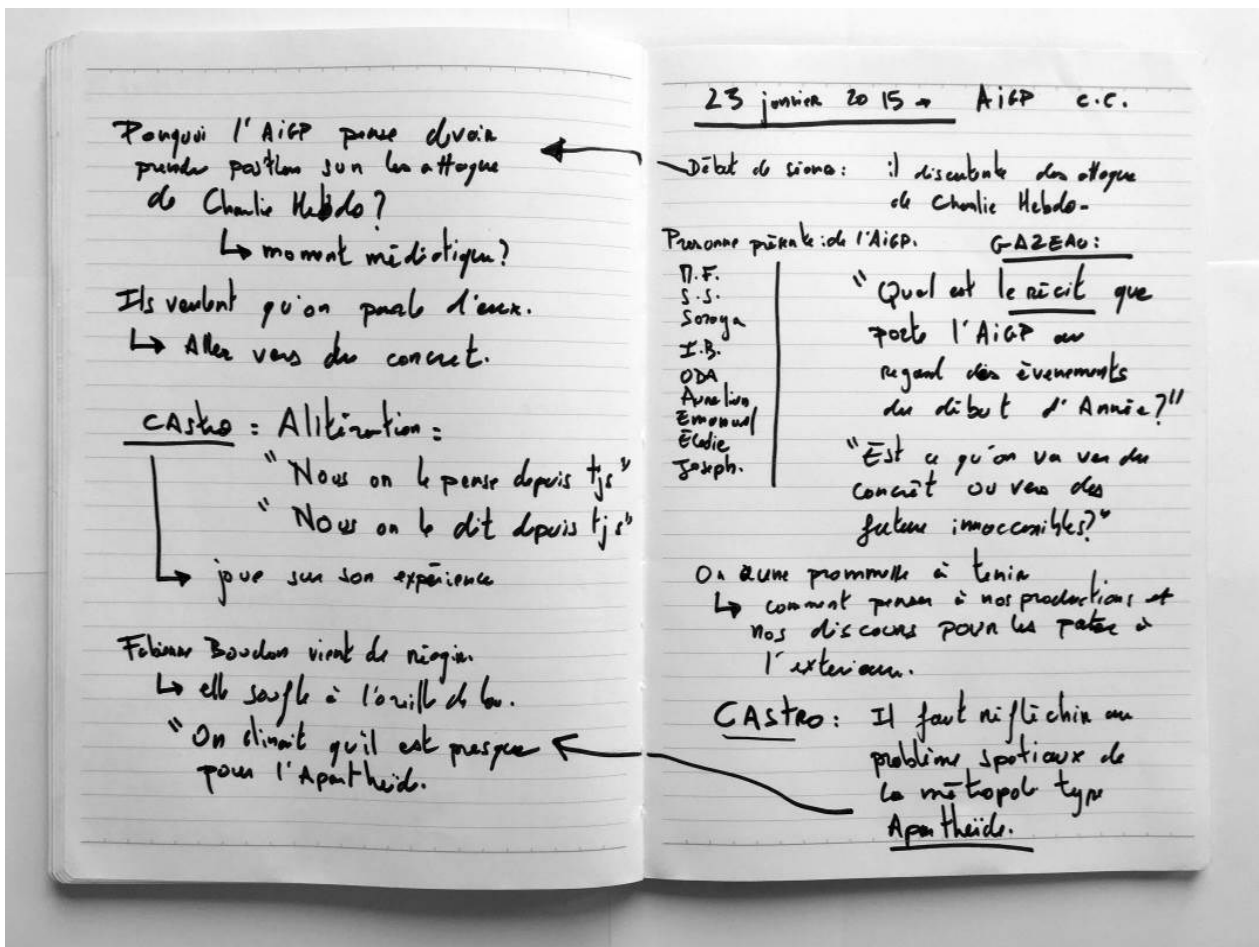 Ponquoi l'AiGP pense devoir
prendre position sur les attaque
de Charlie Hebdo?
↳ moment médiatique?
Ils veulent qu'on parle d'eux.
↳ Aller vers du concret.
CAstro : Alitération :
"Nous on le pense depuis tjs"
"Nous on le dit depuis tjs"
↳ joue sur son expérience
Fabienne Boudon vient de réagir.
↳ elle soufle à l'oreille de
"On dirait qu'il est presque
pour l'Apartheid.
23 janvier 2015 → AiGP C.C.
Début de séance : il discutent des attaque
de Charlie Hebdo.
Personne présente : de l'AiGP.
M.F.
S.S.
Soraya
I.B.
ODA
Aurelien
Emanuel
Élodie
Joseph.
GAZEAU :
"Quel est le récit que
porte l'AiGP au
regard des évenements
du début d'Année?"
"Est ce qu'on va vers du
concrèt ou vers des
future innaccessibles?"
On a une à tenir
↳ comment penser à nos productions et
nos discours pour les à
l'exterieur.
CAStRO : Il faut réfléchir au
problème spatiaux de
la métropole type
Apartheïde.